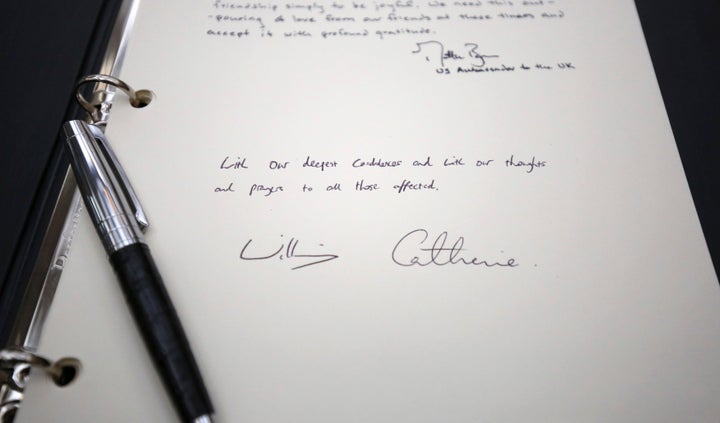 friendship simply to be joyful. We need this out-
-pouring of love from our friends at these times and
accept it with profound gratitude.
US Ambassador to the UK
With our deepest Condolences and with our thoughts
and prayers to all those affected.
William
Catherine.